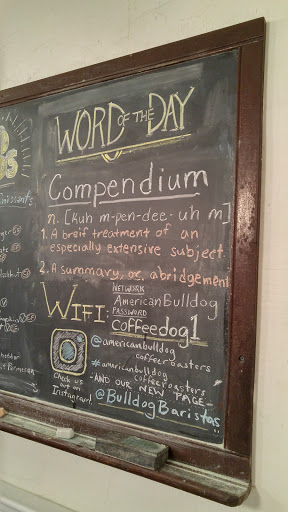 WORD OF THE DAY
Compendium
n. [kuh m-pen-dee-uh m]
1. A breif treatment of an
especially extensive subject
2. A summary, or, abridgement
WIFI: NETWORK
AmericanBulldog
PASSWORD
Coffeedog1
@americanbulldog
coffeeroasters
#americanbulldog
coffeeroasters
Check us
out on
Instagram!
-AND OUR NEW PAGE-
@BulldogBaristas